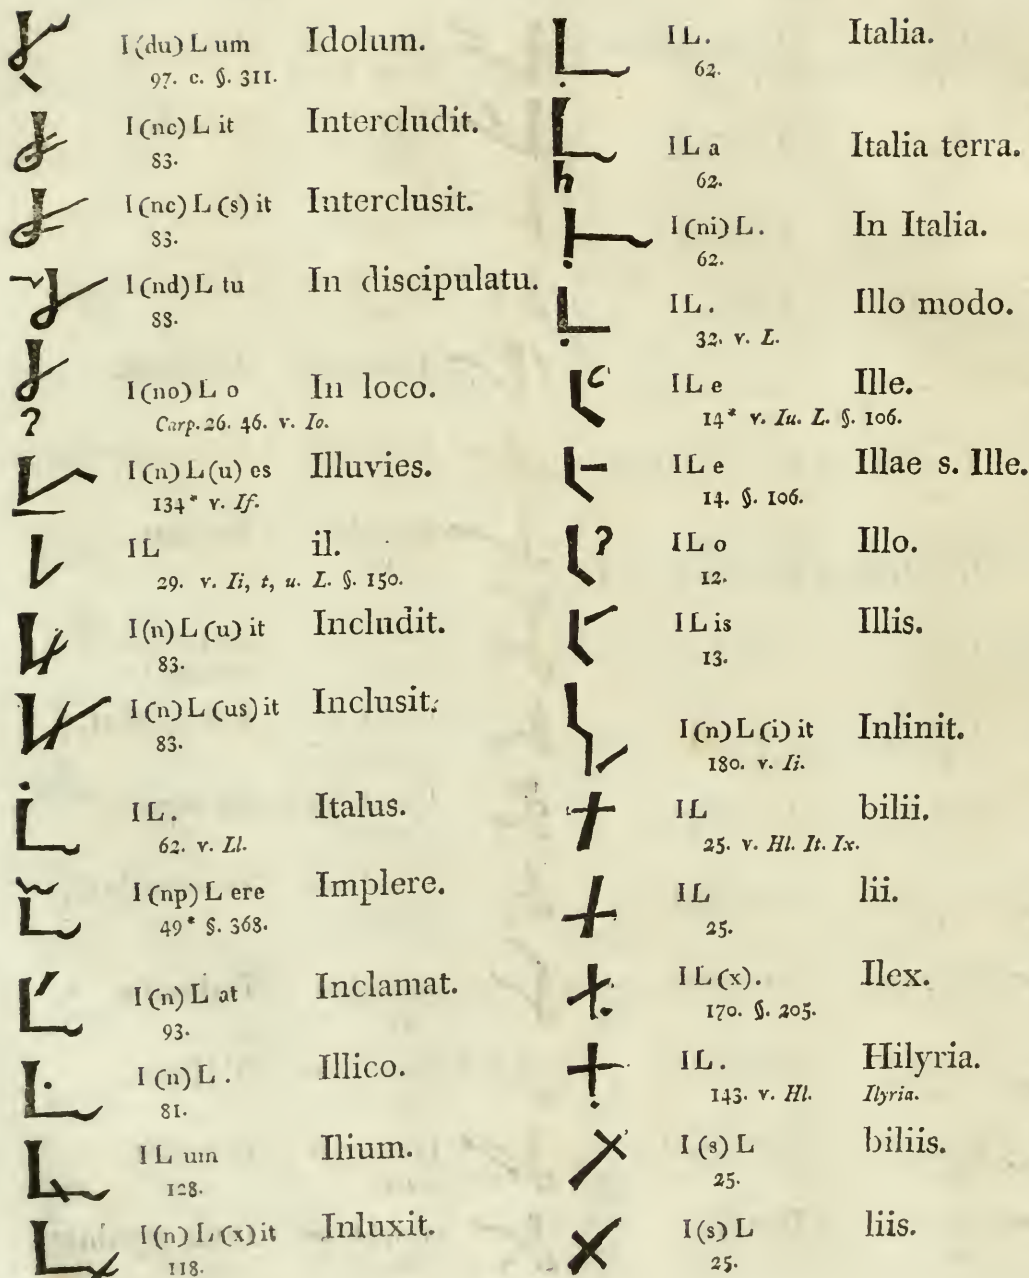 I (du) L um Idolum.
97. c. §. 311.
I (nc) L it Intercludit.
83.
I (nc) L (s) it Interclusit.
83.
I (nd) L tu In discipulatu.
88.
I (no) L o In loco.
Carp. 26. 46. v. Io.
I (n) L (u) es Illuvies.
134* v. If.
IL il.
29. v. Ii, t, u. L. §. 150.
I (n) L (u) it Includit.
83.
I (n) L (us) it Inclusit.
83.
IL. Italus.
62. v. Ll.
I (np) L ere Implere.
49* §. 368.
I (n) L at Inclamat.
93.
I (n) L . Illico.
81.
IL um Ilium.
128.
I (n) L (x) it Inluxit.
118.
IL. Italia.
62.
IL a Italia terra.
62.
h
I (ni) L. In Italia.
62.
IL. Illo modo.
32. v. L.
IL e Ille.
14* v. Iu. L. §. 106.
IL e Illae s. Ille.
14. §. 106.
IL o Illo.
12.
IL is Illis.
13.
I (n) L (i) it Inlinit.
180. v. Ii.
IL bilii.
25. v. Hl. It. Ix.
IL lii.
25.
IL (x). Ilex.
170. §. 205.
IL. Hilyria.
143. v. Hl. Ilyria.
I (s) L biliis.
25.
I (s) L liis.
25.